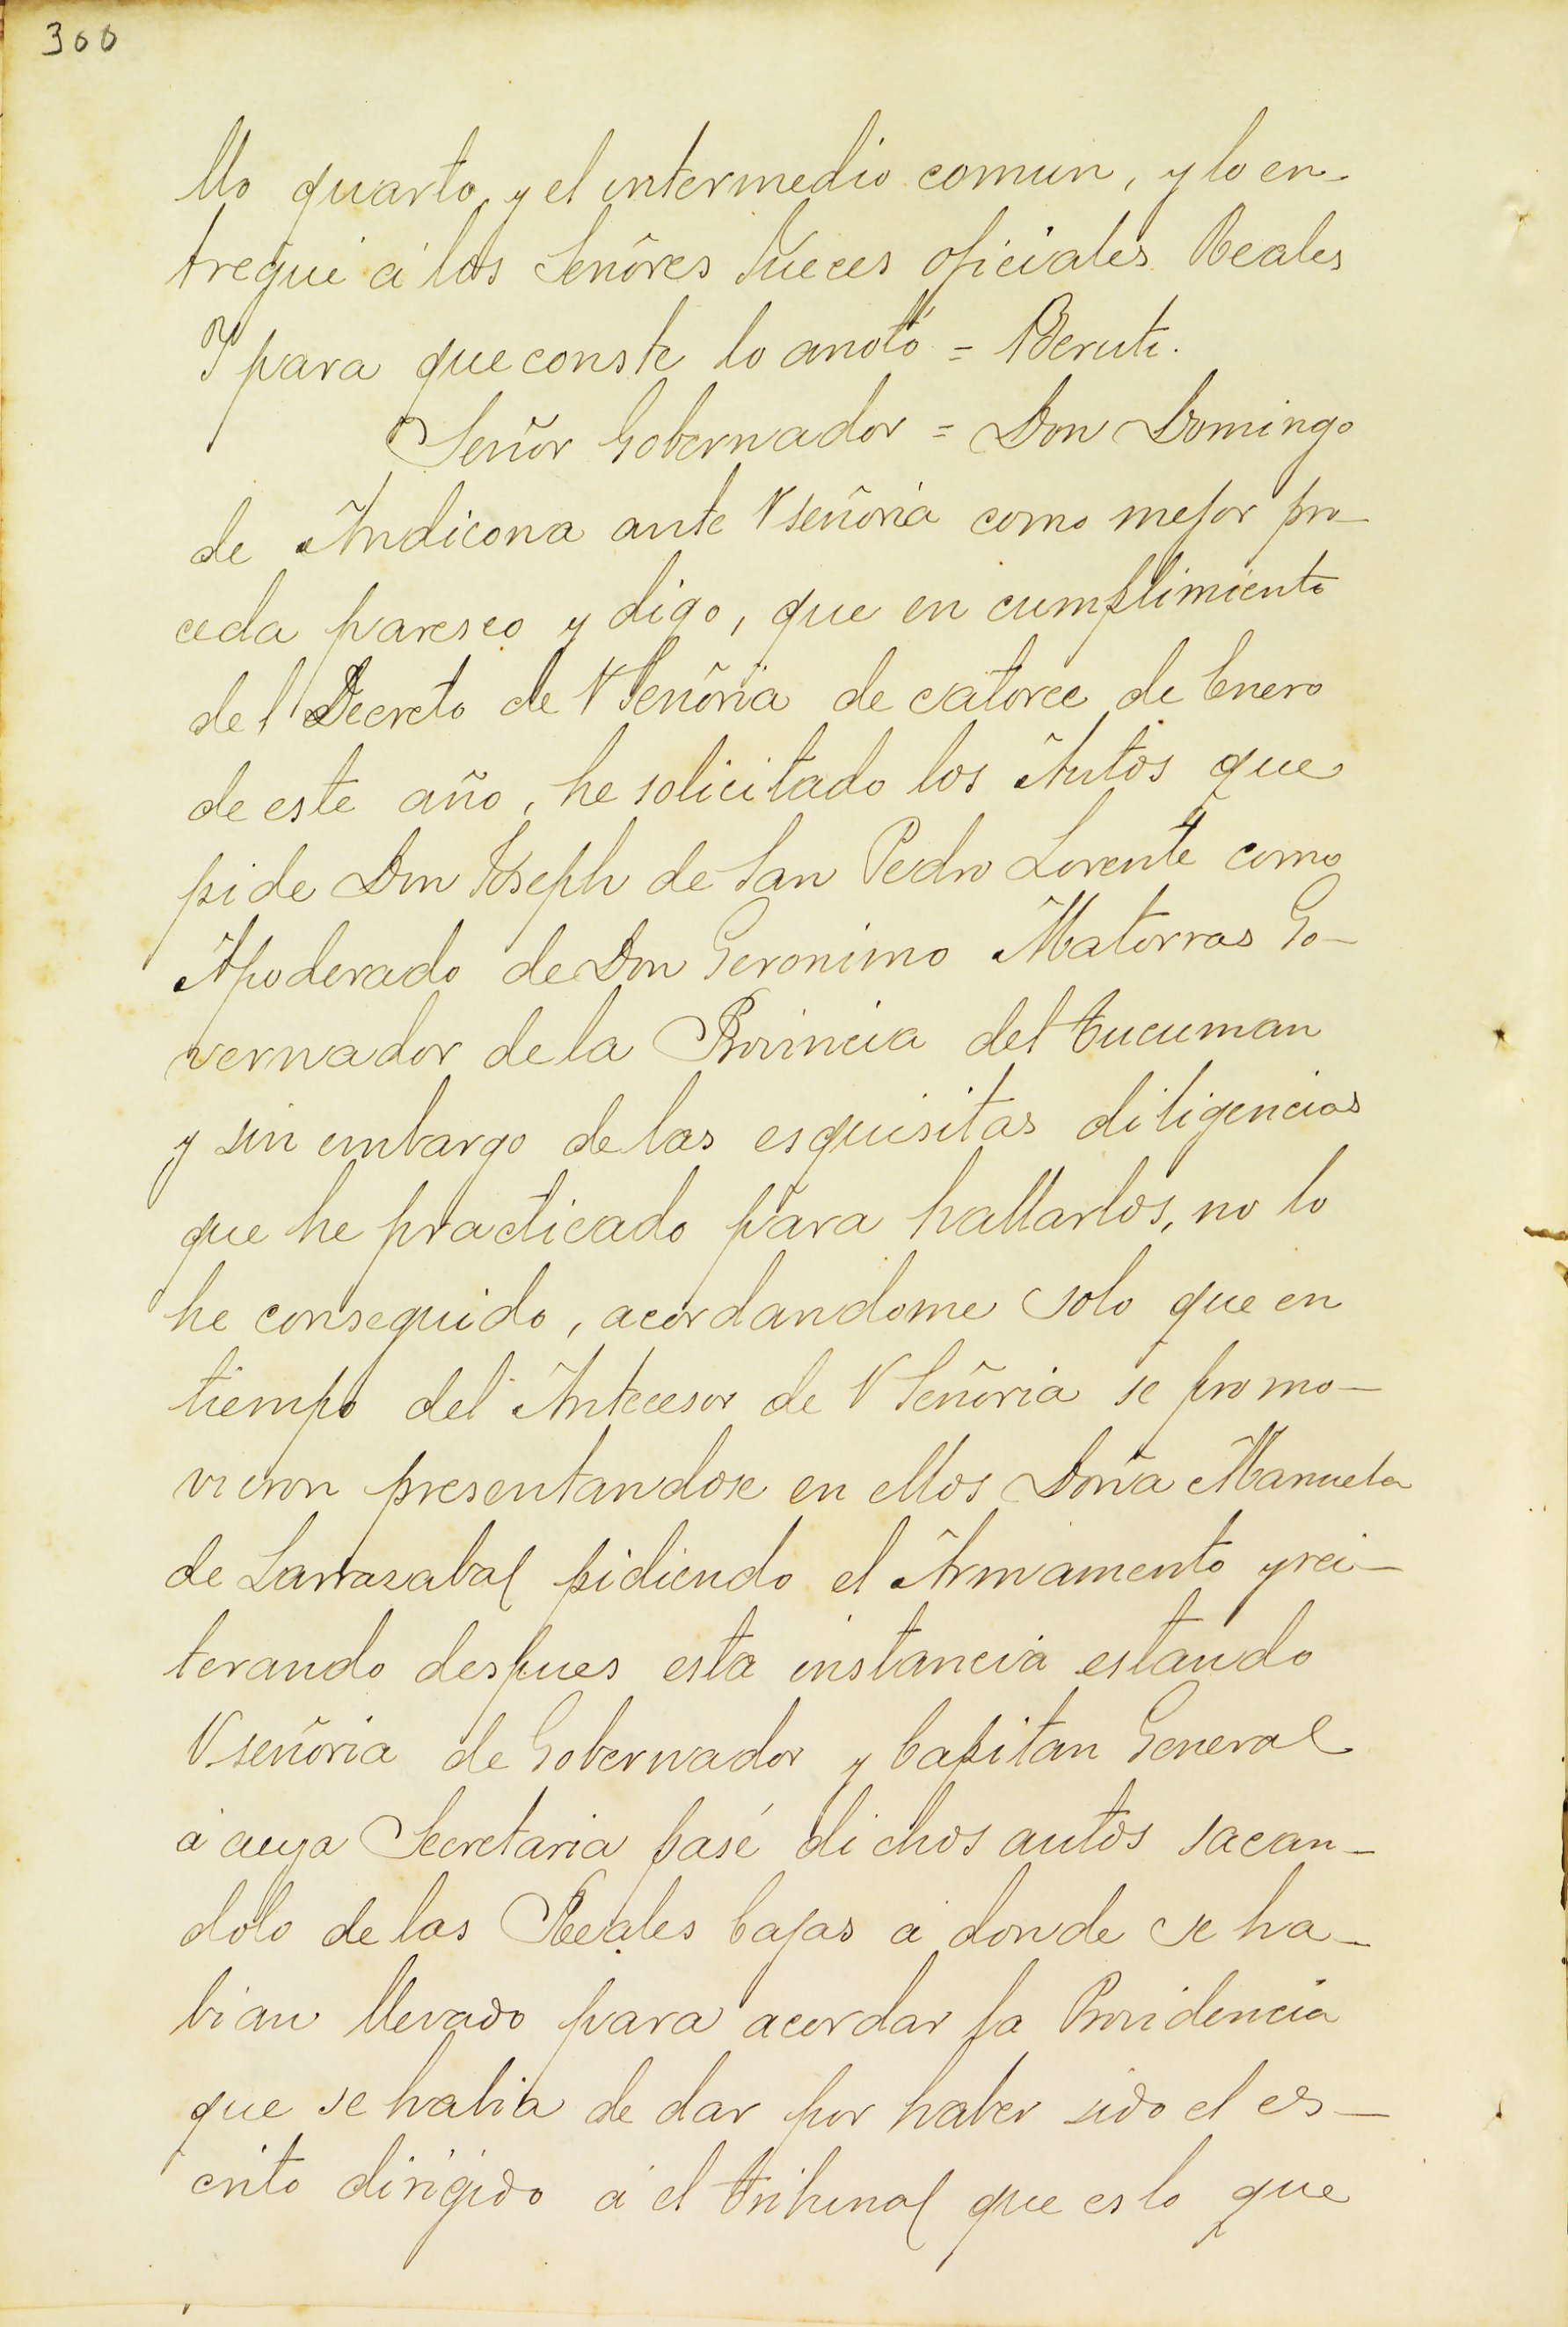 300
llo quarto, y el intermedio comun, y lo en-
tregué á los Señores Jueces oficiales Reales
Y para que conste lo anoto = Beruti.
Señor Gobernador = Don Domingo
de Andicona ante V señoria como mejor pro-
ceda paresco y digo, que en cumplimiento
del Decreto de V Señoria de catorce de Enero
de este año, he solicitado los Autos que
pide Don Joseph de San Pedro Lorente como
Apoderado de Don Geronimo Matorras Go-
vernador de la Provincia del Tucuman
y sin embargo de las esquisitas diligencias
que he practicado para hallarlos, no lo
he conseguido, acordandome solo que en
tiempo del Antecesor de V Señoria se promo-
vieron presentandose en ellos Doña Manuela
de Larrasabal pidiendo el Armamento y rei-
terando despues esta instancia estando
V señoria de Gobernador y Capitan General
á cuya Secretaria pasé dichos autos sacan-
dolo de las Reales Cajas a donde se ha-
bian llevado para acordar la Providencia
que se habia de dar por haber sido el es-
crito dirigido á el Tribunal que es lo que